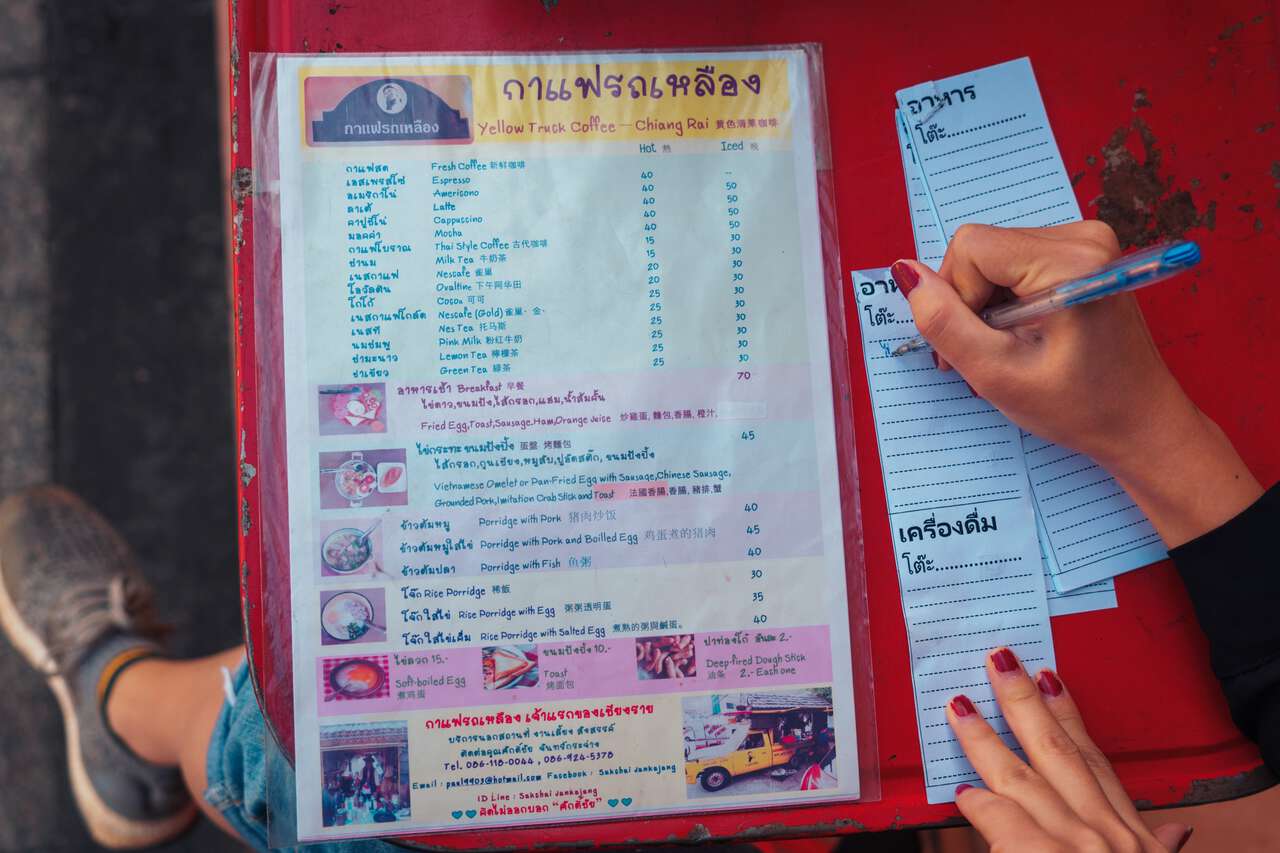 กาแฟรถเหลือง
กาแฟรถเหลือง
Yellow Truck Coffee – Chiang Rai 黃色清萊咖啡
Hot 熱 Iced
กาแฟสด Fresh Coffee 新鮮咖啡
เอสเพรสโซ่ Espresso 40 --
อเมริกาโน่ Americano 40 50
ลาเต้ Latte 40 50
คาปูชิโน่ Cappuccino 40 50
มอคค่า Mocha 40 50
กาแฟโบราณ Thai Style Coffee 古代咖啡 15 30
ชานม Milk Tea 牛奶茶 15 30
เนสกาแฟ Nescafe 雀巢 20 30
โอวัลติน Ovaltine 下午阿华田 20 30
โกโก้ Cocoa 可可 25 30
เนสกาแฟโกล์ด Nescafe (Gold) 雀巢·金· 25 30
เนสที Nes Tea 托马斯 25 30
นมชมพู Pink Milk 粉红牛奶 25 30
ชามะนาว Lemon Tea 檸檬茶 25 30
ชาเขียว Green Tea 綠茶 25 30
อาหารเช้า Breakfast 早餐 70
ไข่ดาว,ขนมปัง,ไส้กรอก,แฮม,น้ำส้มคั้น
Fried Egg,Toast,Sausage,Ham,Orange Juice 炒雞蛋, 麵包, 香腸, 橙汁,
ไข่กระทะ ขนมปังปิ้ง 蛋盤, 烤麵包 45
ไส้กรอก,กุนเชียง,หมูสับ,ปูอัดสติ๊ก, ขนมปังปิ้ง
Vietnamese Omelet or Pan-Fried Egg with Sausage,Chinese Sausage,
Grounded Pork,Imitation Crab Stick and Toast 法國香腸,香腸, 豬排,蟹
ข้าวต้มหมู Porridge with Pork 猪肉炒饭 40
ข้าวต้มหมูใส่ไข่ Porridge with Pork and Boilled Egg 鸡蛋煮的猪肉 45
ข้าวต้มปลา Porridge with Fish 鱼粥 40
โจ๊ก Rise Porridge 稀飯 30
โจ๊กใส่ไข่ Rise Porridge with Egg 粥粥透明蛋 35
โจ๊กใส่ไข่เค็ม Rise Porridge with Salted Egg 煮熟的粥與鹹蛋。 40
ไข่ลวก 15.-
Soft-boiled Egg
煮鸡蛋
ขนมปังปิ้ง 10.-
Toast
烤面包
ปาท่องโก๋ อันละ 2.-
Deep-fired Dough Stick
油条 2.- Each one
กาแฟรถเหลือง เจ้าแรกของเชียงราย
บริการนอกสถานที่ งานเลี้ยง สังสรรค์
ติดต่อคุณศักดิ์ชัย จันทร์กระจ่าง
Tel. 086-118-0044 , 086-924-5378
Email : paul9903@hotmail.com Facebook : Sakchai Jankajang
ID Line : Sakchai Jankajang
คิดไม่ออกบอก "ศักดิ์ชัย"
อาหาร
โต๊ะ
โต๊ะ
เครื่องดื่ม
โต๊ะ